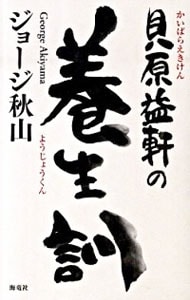 かいばらえきけん
貝原益軒の
養生訓
ようじょうくん
George Akiyama
ジョージ秋山
海竜社